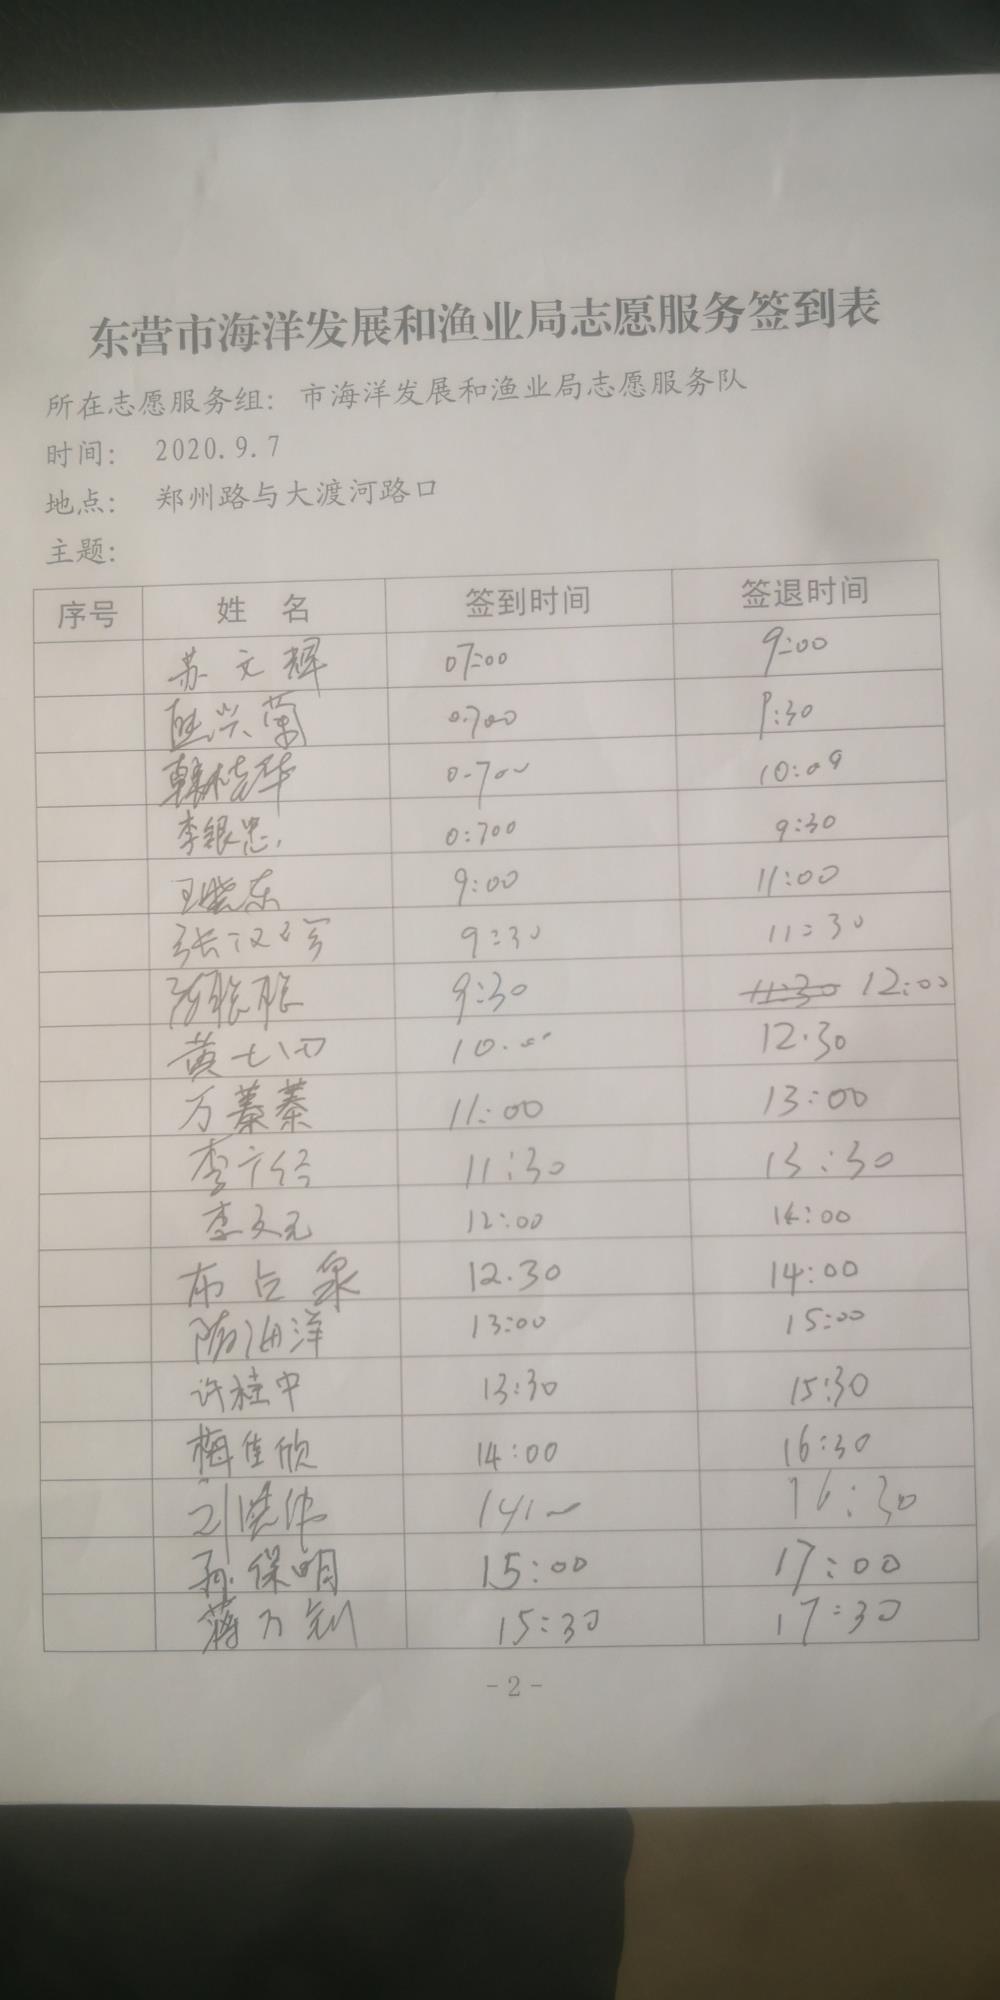 东营市海洋发展和渔业局志愿服务签到表
所在志愿服务组： 市海洋发展和渔业局志愿服务队
时间： 2020.9.7
地点： 郑州路与大渡河路口
主题：
序号 姓 名 签到时间 签退时间
苏文辉 07:00 9:00
兴 0.700 9:30
韩 华 0.700 10:09
李银忠 0:700 9:30
王晓东 9:00 11:00
张汉 9:30 11:30
9:30 11:30 12:00
黄 10.00 12.30
万蓁蓁 11:00 13:00
李 11:30 13:30
李文元 12:00 14:00
布占泉 12.30 14:00
隋海洋 13:00 15:00
许桂中 13:30 15:30
梅佳欣 14:00 16:30
刘 伟 16:30
孙保明 15:00 17:00
蒋万钊 15:30 17:30
-2-